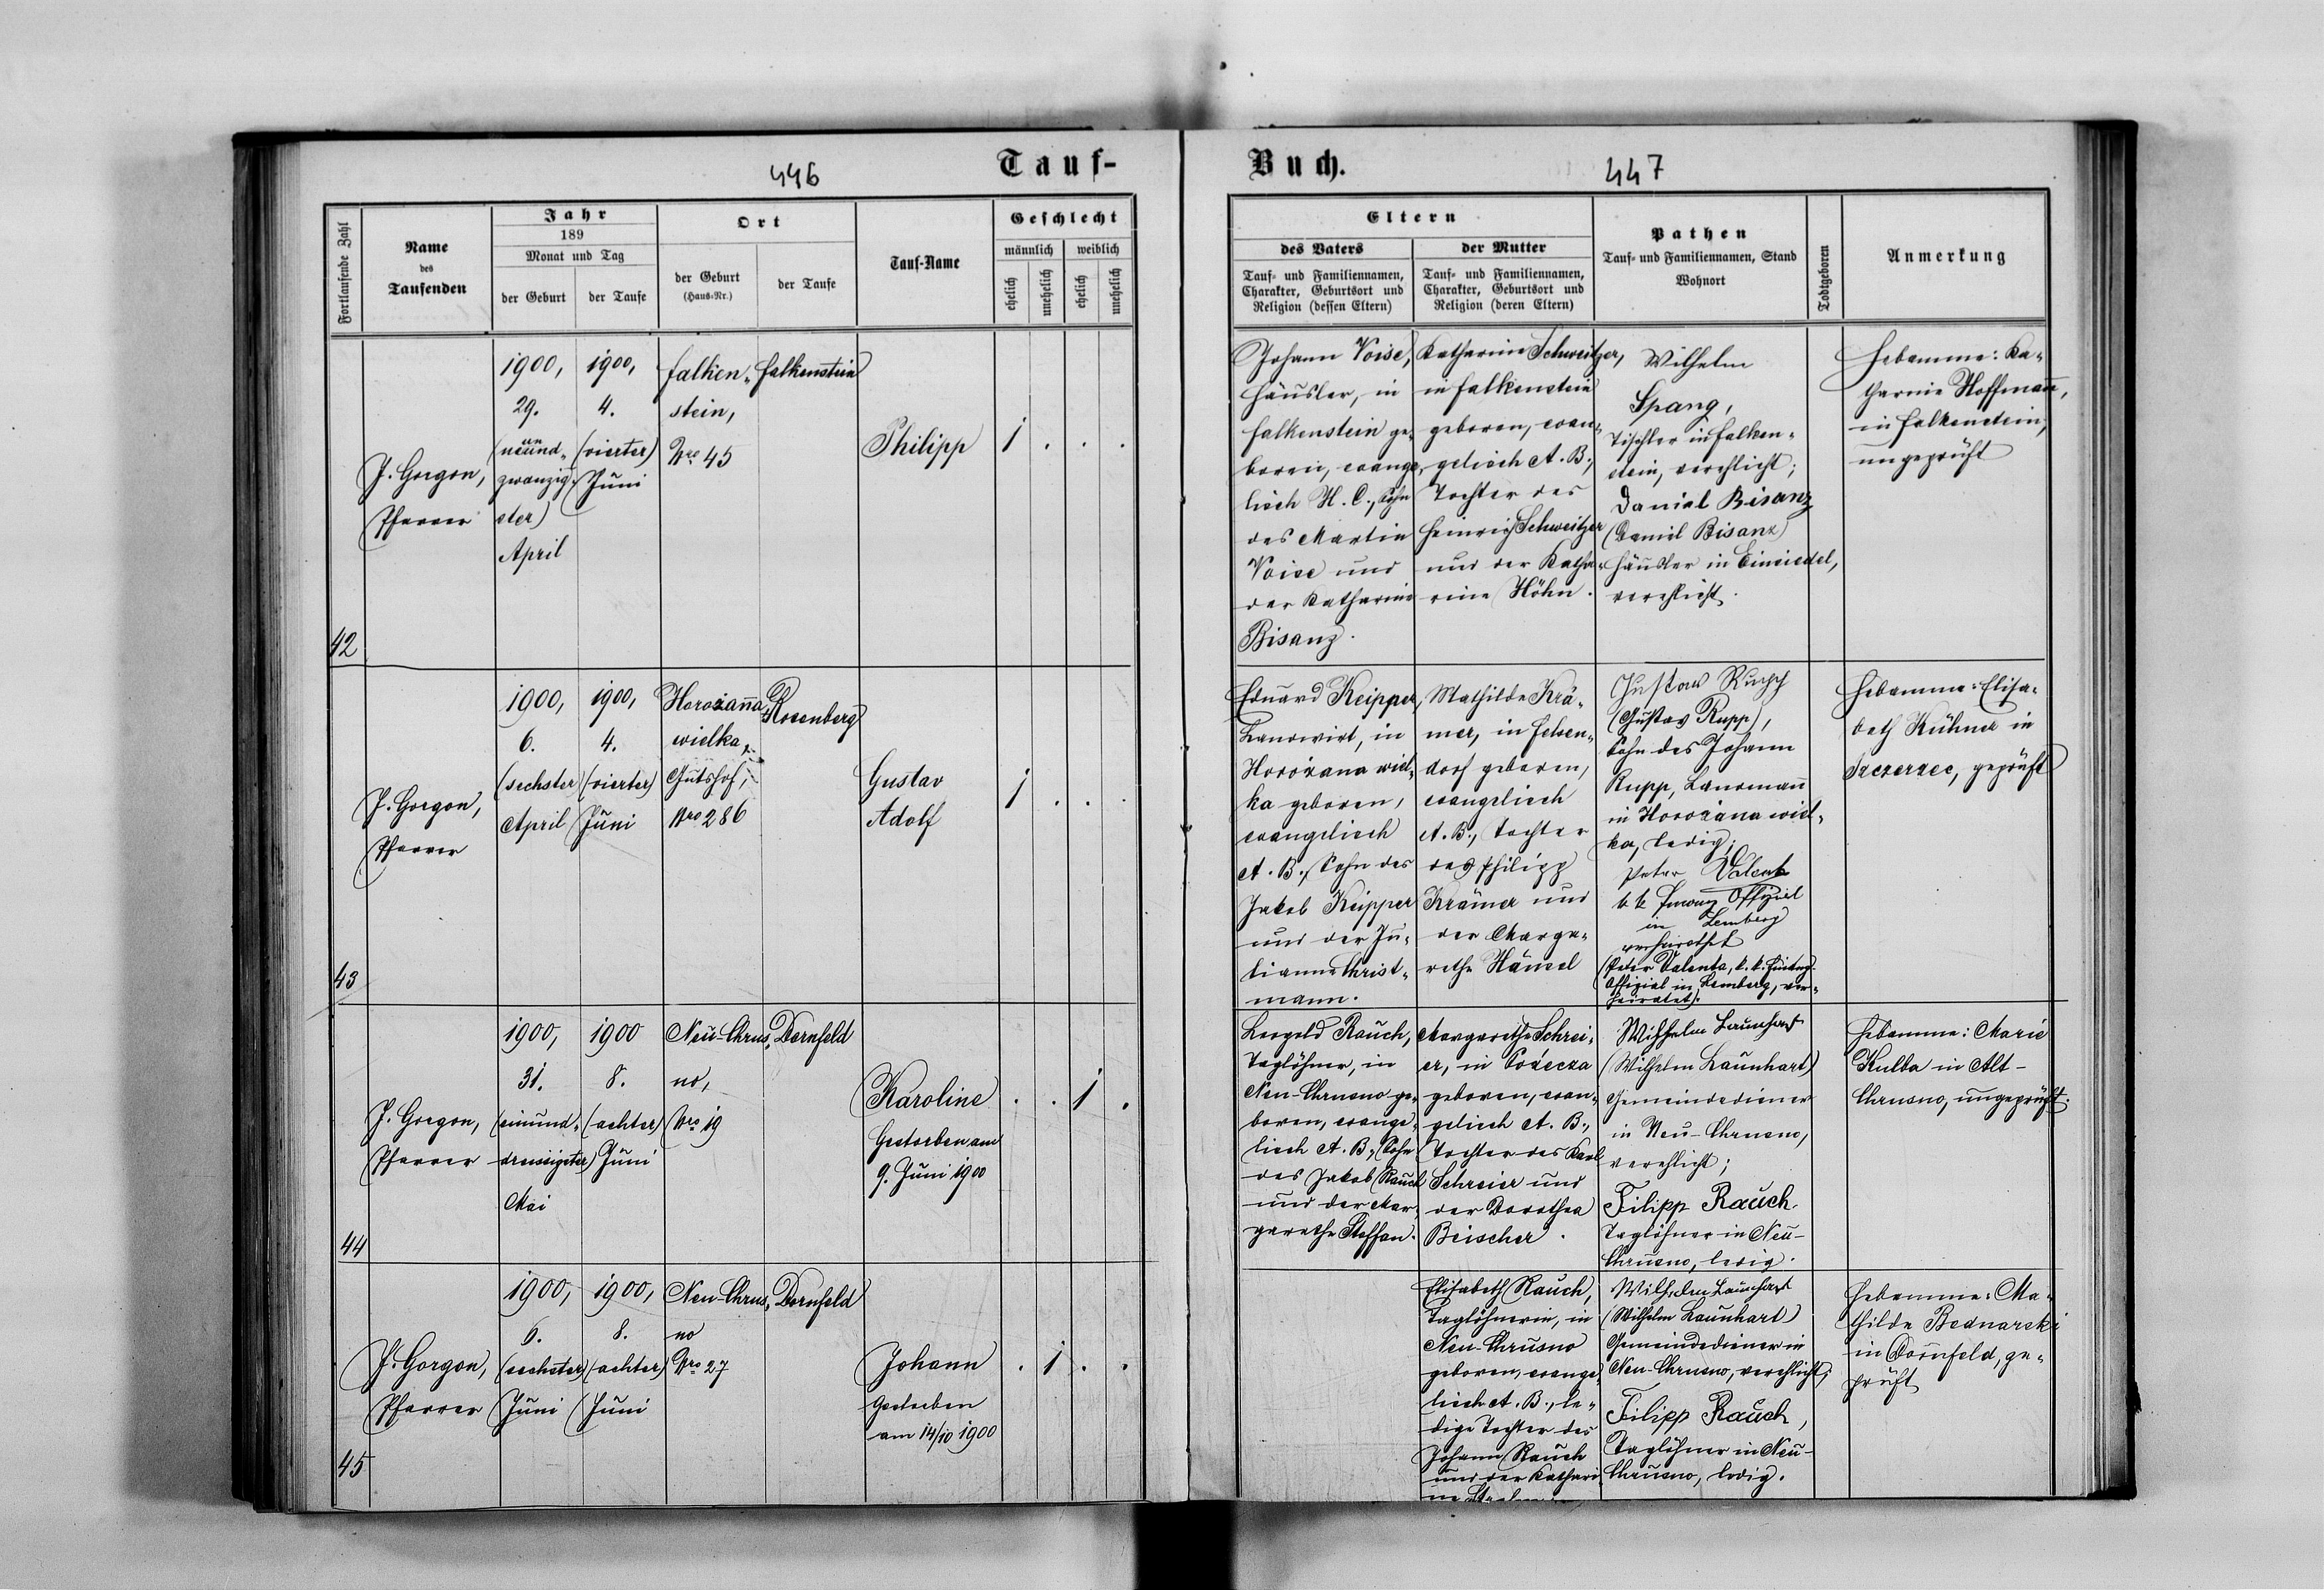 446
Tauf-
Fortlaufende Zahl
Name
des
Taufenden
Jahr
189
Monat und Tag
der Geburt
der Taufe
Ort
der Geburt
(Haus-Nr.)
der Taufe
Tauf-Name
Geschlecht
männlich
weiblich
ehelich
unehelich
ehelich
unehelich
42
J. Gorgon,
Pfarrer
1900,
29.
(neunund-
zwanzig-
ster)
April
1900,
4.
(vierter)
Juni
Falken-
stein,
Nro 45
Falkenstein
Philipp
1 . . .
43
J. Gorgon,
Pfarrer
1900,
6.
(sechster)
April
1900,
4.
(vierter)
Juni
Horożanna
wielka,
Gutshof,
Nro 286
Rosenberg
Gustav
Adolf
1 . . .
44
J. Gorgon,
Pfarrer
1900,
31.
(einund-
dreissigster)
Mai
1900
8.
(achter)
Juni
Neu-Chrus-
no,
Nro 19
Dornfeld
Karoline
Gestorben am
9. Juni 1900
. . 1 .
45
J. Gorgon,
Pfarrer
1900,
6.
(sechster)
Juni
1900,
8.
(achter)
Juni
Neu-Chrus-
no
Nro 27
Dornfeld
Johann
Gestorben
am 14/10 1900
. 1 . .
Buch.
447
Eltern
des Vaters
Tauf- und Familiennamen,
Charakter, Geburtsort und
Religion (dessen Eltern)
der Mutter
Tauf- und Familiennamen,
Charakter, Geburtsort und
Religion (deren Eltern)
Pathen
Tauf- und Familiennamen, Stand
Wohnort
Todtgeboren
Anmerkung
Johann Voise,
Häusler, in
Falkenstein ge-
boren, evange-
lisch H. C., Sohn
des Martin
Voise und
der Katharine
Bisanz.
Katharine Schweitzer,
in Falkenstein
geboren, evan-
gelisch A. B.,
Tochter des
Heinrich Schweitzer
und der Katha-
rine Höhn.
Wilhelm
Spang,
Tischler in Falken-
stein, verehlicht;
Daniel Bisanz
(Daniel Bisanz)
Häusler in Einsiedel,
verehlicht.
Hebamme: Ka-
tharine Hoffmann,
in Falkenstein,
ungeprüft
Eduard Keipper,
Landwirt, in
Horożana wiel-
ka geboren,
evangelisch
A. B., Sohn des
Jakob Keipper
und der Ju-
lianne Christ-
mann.
Mathilde Krä-
mer, in Felsen-
dorf geboren,
evangelisch
A. B., Tochter
des Philipp
Krämer und
der Marga-
rethe Hänsel
Gustav Rupp
(Gustav Rupp),
Sohn des Johann
Rupp, Landmann
in Horożana wiel-
ka, ledig;
Peter Valenta
k k Finanz Offizial
in Lemberg
verheirathet
(Peter Valenta, k. k. Finanz-
Offizial in Lemberg, ver-
heiratet).
Hebamme: Elisa-
beth Kühner in
Szczerzec, geprüft
Leopold Rauch,
Taglöhner, in
Neu-Chrusno ge-
boren, evange-
lisch A. B., Sohn
des Jakob Rauch
und der Mar-
garethe Steffan.
Margarethe Schrei-
er, in
geboren, evan-
gelisch A. B.,
Tochter des Karl
Schreier und
der Dorothea
Beischer.
Wilhelm Launhart
(Wilhelm Launhart)
Gemeindediener
in Neu-Chrusno,
verehlicht;
Filipp Rauch.
Taglöhner in Neu-
Chrusno, ledig.
Hebamme: Marie
Kulba in Alt-
Chrusno, ungeprüft.
Elisabeth Rauch,
Taglöhnerin, in
Neu-Chrusno
geboren, evange-
lisch A. B., le-
dige Tochter des
Johann Rauch
und der Kathari-
Wilhelm Launhart
(Wilhelm Launhart)
Gemeindediener in
Neu-Chrusno, verehlicht;
Filipp Rauch,
Taglöhner in Neu-
Chrusno, ledig.
Hebamme: Ma-
thilde Bednarski
in Dornfeld, ge-
prüft